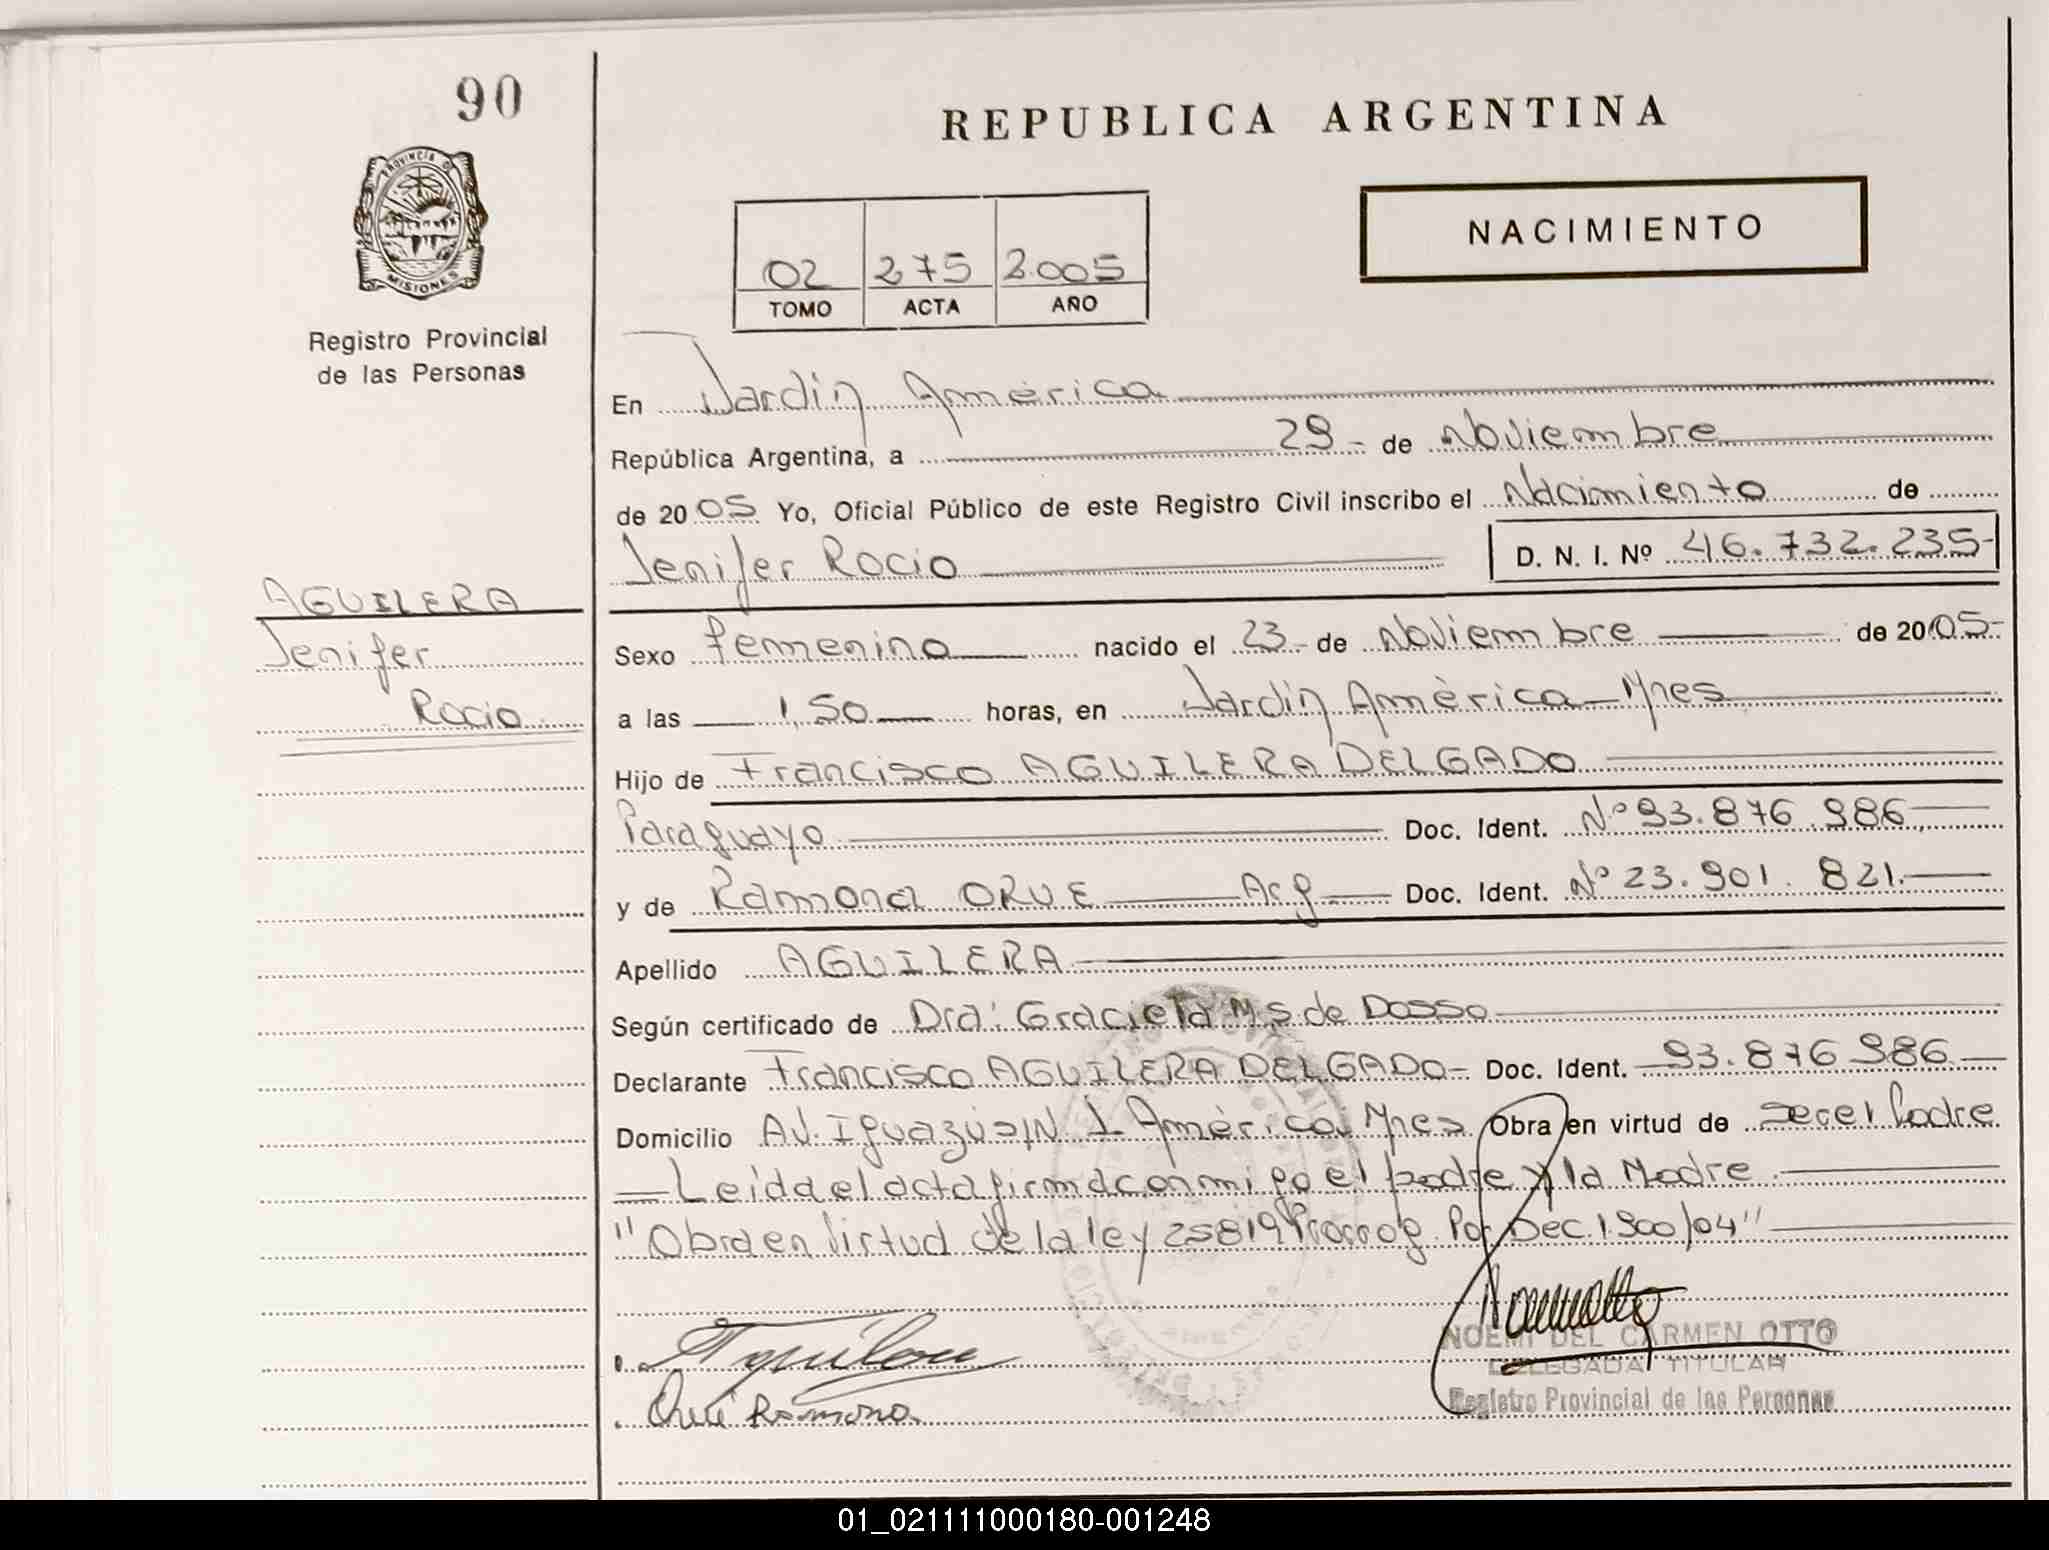 90
REPUBLICA ARGENTINA
PROVINCIA DE
MISIONES
Registro Provincial
de las Personas
NACIMIENTO
02 275 2.005
TOMO ACTA AÑO
En Jardín América
República Argentina, a 29 de Noviembre
de 2005 Yo, Oficial Público de este Registro Civil inscribo el Nacimiento de
Jenifer Rocio D. N. I. Nº 46.732.235
AGUILERA
Jenifer
Rocio
Sexo femenino nacido el 23 de Noviembre de 2005
a las 1,50 horas, en Jardín América - Mnes
Hijo de Francisco AGUILERA DELGADO
Paraguayo Doc. Ident. Nº 93.876.986
y de Ramona ORUE Arg Doc. Ident. Nº 23.901.821
Apellido AGUILERA
Según certificado de Dra. Graciela M.S. de Dosso
Declarante Francisco AGUILERA DELGADO Doc. Ident. 93.876.986
Domicilio Av. Iguazú s/N J. América Mnes Obra en virtud de ser el Padre
Leida el acta firma conmigo el padre y la Madre
"Obra en Virtud de la ley 25819 Prorrog. Por Dec. 1.900/04"
Orué Ramona
NOEMI DEL CARMEN OTTO
DELEGADA TITULAR
Registro Provincial de las Personas
01_021111000180-001248